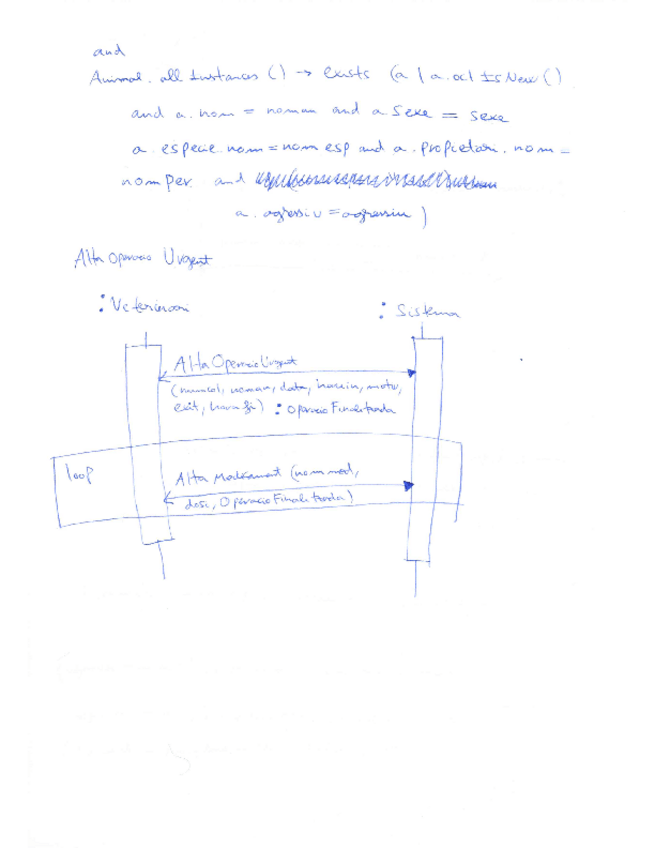 and
Animal. all Instances () → exists (a | a.ocl Is New ()
and a. nom = noman and a. sexe = sexe
a. especie. nom = nom esp and a. propietari. nom =
nom per and
a. agressiu = agressiu )
Alta Operacio Urgent
: Veterinari
: Sistema
Alta Operacio Urgent
(numcol, noman, data, horain, motiu,
exit, hora fi) : Operacio Finalitzada
loop
Alta Medicament (nom med,
dosi, Operacio Finalitzada)